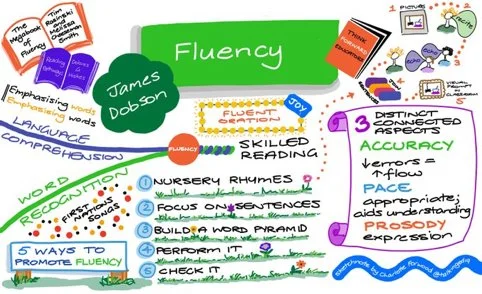 Fluency
The
Megabook
of
Fluency
Tim
Rasinski
and
Melissa
Cheesman
Smith
James
Dobson
Emphasising words
Emphasising words
LANGUAGE
COMPREHENSION
WORD
RECOGNITION
FIRST
NATIONS
SONGS
5 WAYS TO
PROMOTE FLUENCY
FLUENT
ORATION
JOY
FLUENCY
SKILLED
READING
1 NURSERY RHYMES
2 FOCUS ON SENTENCES
3 BUILD A WORD PYRAMID
4 PERFORM IT
5 CHECK IT
THINK
FORWARD
EDUCATORS
1 PICTURE
recite
2
echo
3
echo
4
VISUAL
PROMPT
CLASSROOM
5
3 DISTINCT
CONNECTED
ASPECTS
ACCURACY
↓errors =
↑flow
PACE
appropriate;
aids understanding
PROSODY
expression
sketchnote by Charlotte Forwood